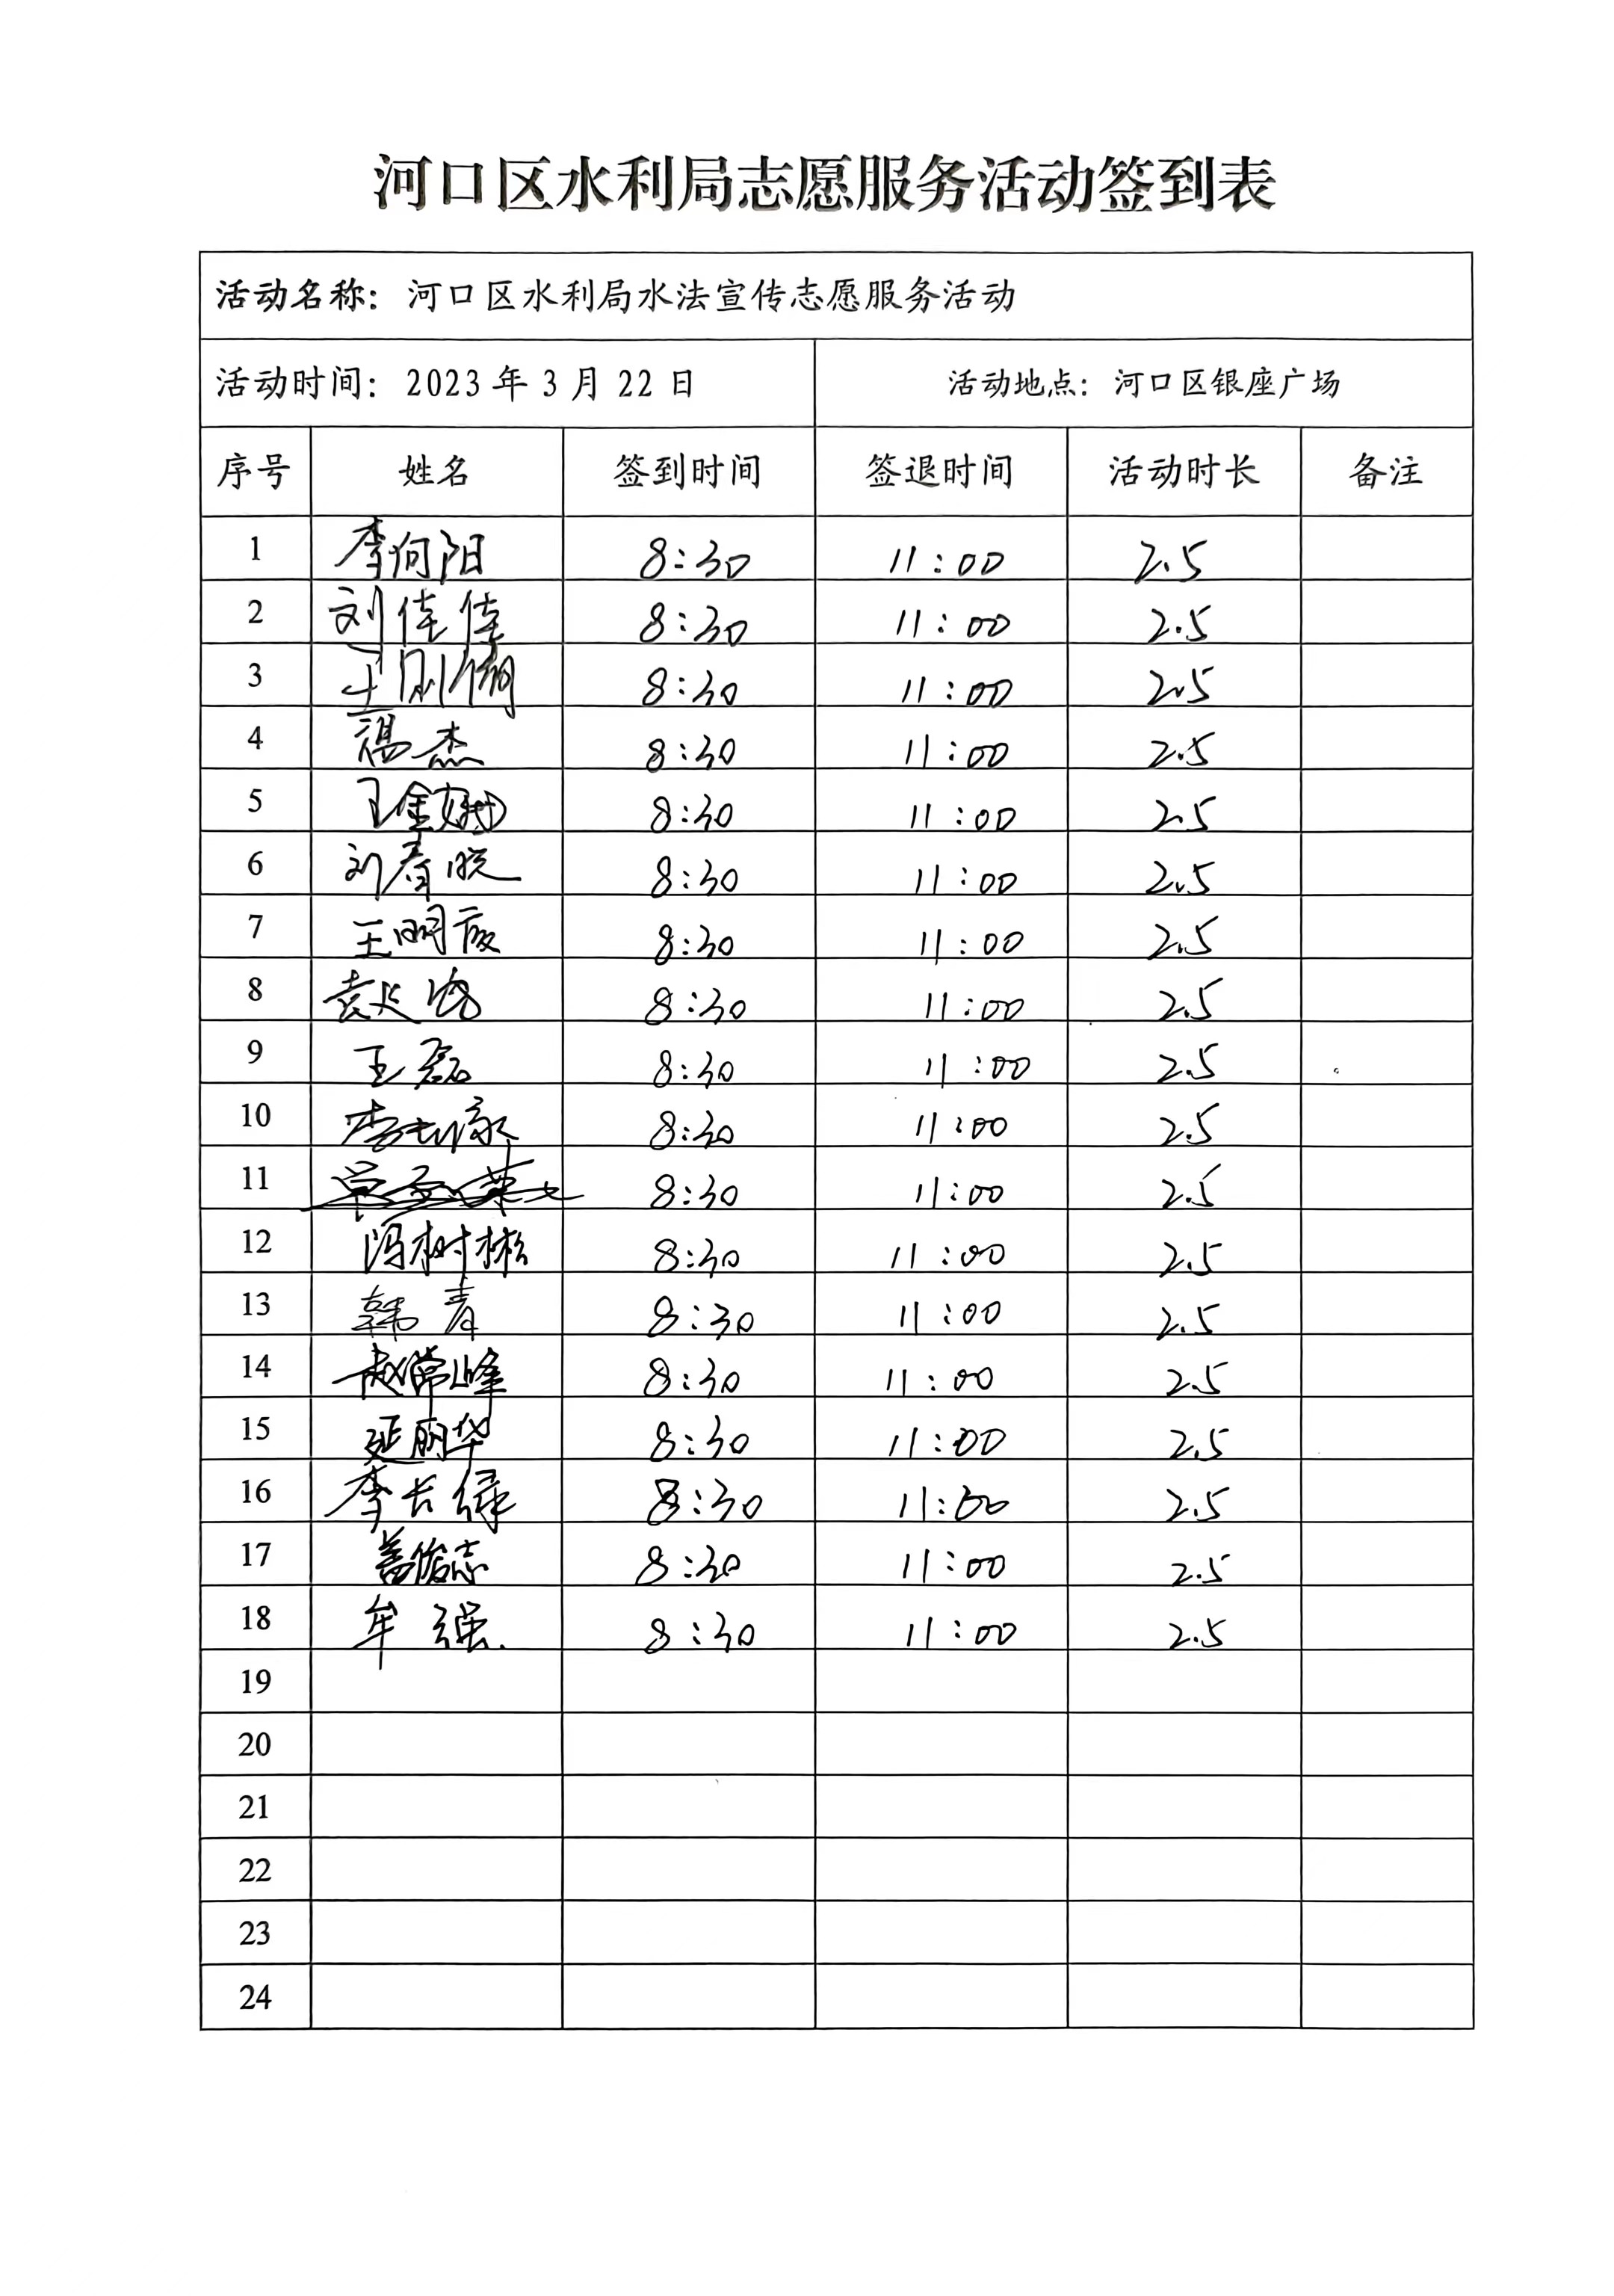 河口区水利局志愿服务活动签到表
活动名称：河口区水利局水法宣传志愿服务活动
活动时间：2023 年 3 月 22 日 活动地点：河口区银座广场
序号 姓名 签到时间 签退时间 活动时长 备注
1 李向阳 8:30 11:00 2.5
2 刘佳佳 8:30 11:00 2.5
3 8:30 11:00 2.5
4 杰 8:30 11:00 2.5
5 王金 8:30 11:00 2.5
6 刘春晓 8:30 11:00 2.5
7 王明 8:30 11:00 2.5
8 袁 8:30 11:00 2.5
9 王磊 8:30 11:00 2.5
10 李 8:30 11:00 2.5
11 8:30 11:00 2.5
12 冯树彬 8:30 11:00 2.5
13 韩青 8:30 11:00 2.5
14 赵常峰 8:30 11:00 2.5
15 延丽华 8:30 11:00 2.5
16 李长绿 8:30 11:00 2.5
17 盖俊志 8:30 11:00 2.5
18 牟强 8:30 11:00 2.5
19
20
21
22
23
24